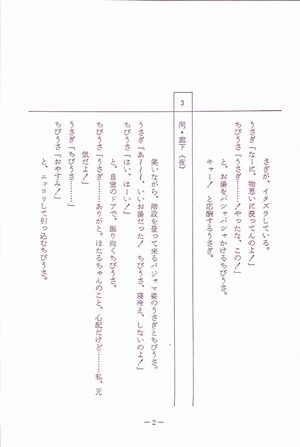 うさぎが、イタズラしている。
うさぎ「なーに、物思いに浸ってんのよ！」
ちびうさ「うさぎ……！やったな、この！」
と、お湯をバシャバシャかけるちびうさ。
キャー！　と応酬するうさぎ。
3
同・廊下（夜）
笑いながら、階段を登って来るパジャマ姿のうさぎとちびうさ。
うさぎ「あーーー、いいお湯だった！　ちびうさ、寝冷え、しないのよ！」
ちびうさ「はい、はーい！」
と、自室のドアで、振り向くちびうさ。
ちびうさ「うさぎ………ありがと。ほたるちゃんのこと、心配だけど……私、元
気だよ！」
うさぎ「ちびうさ………」
ちびうさ「おやすみ！」
と、ニッコリして引っ込むちびうさ。
－2－